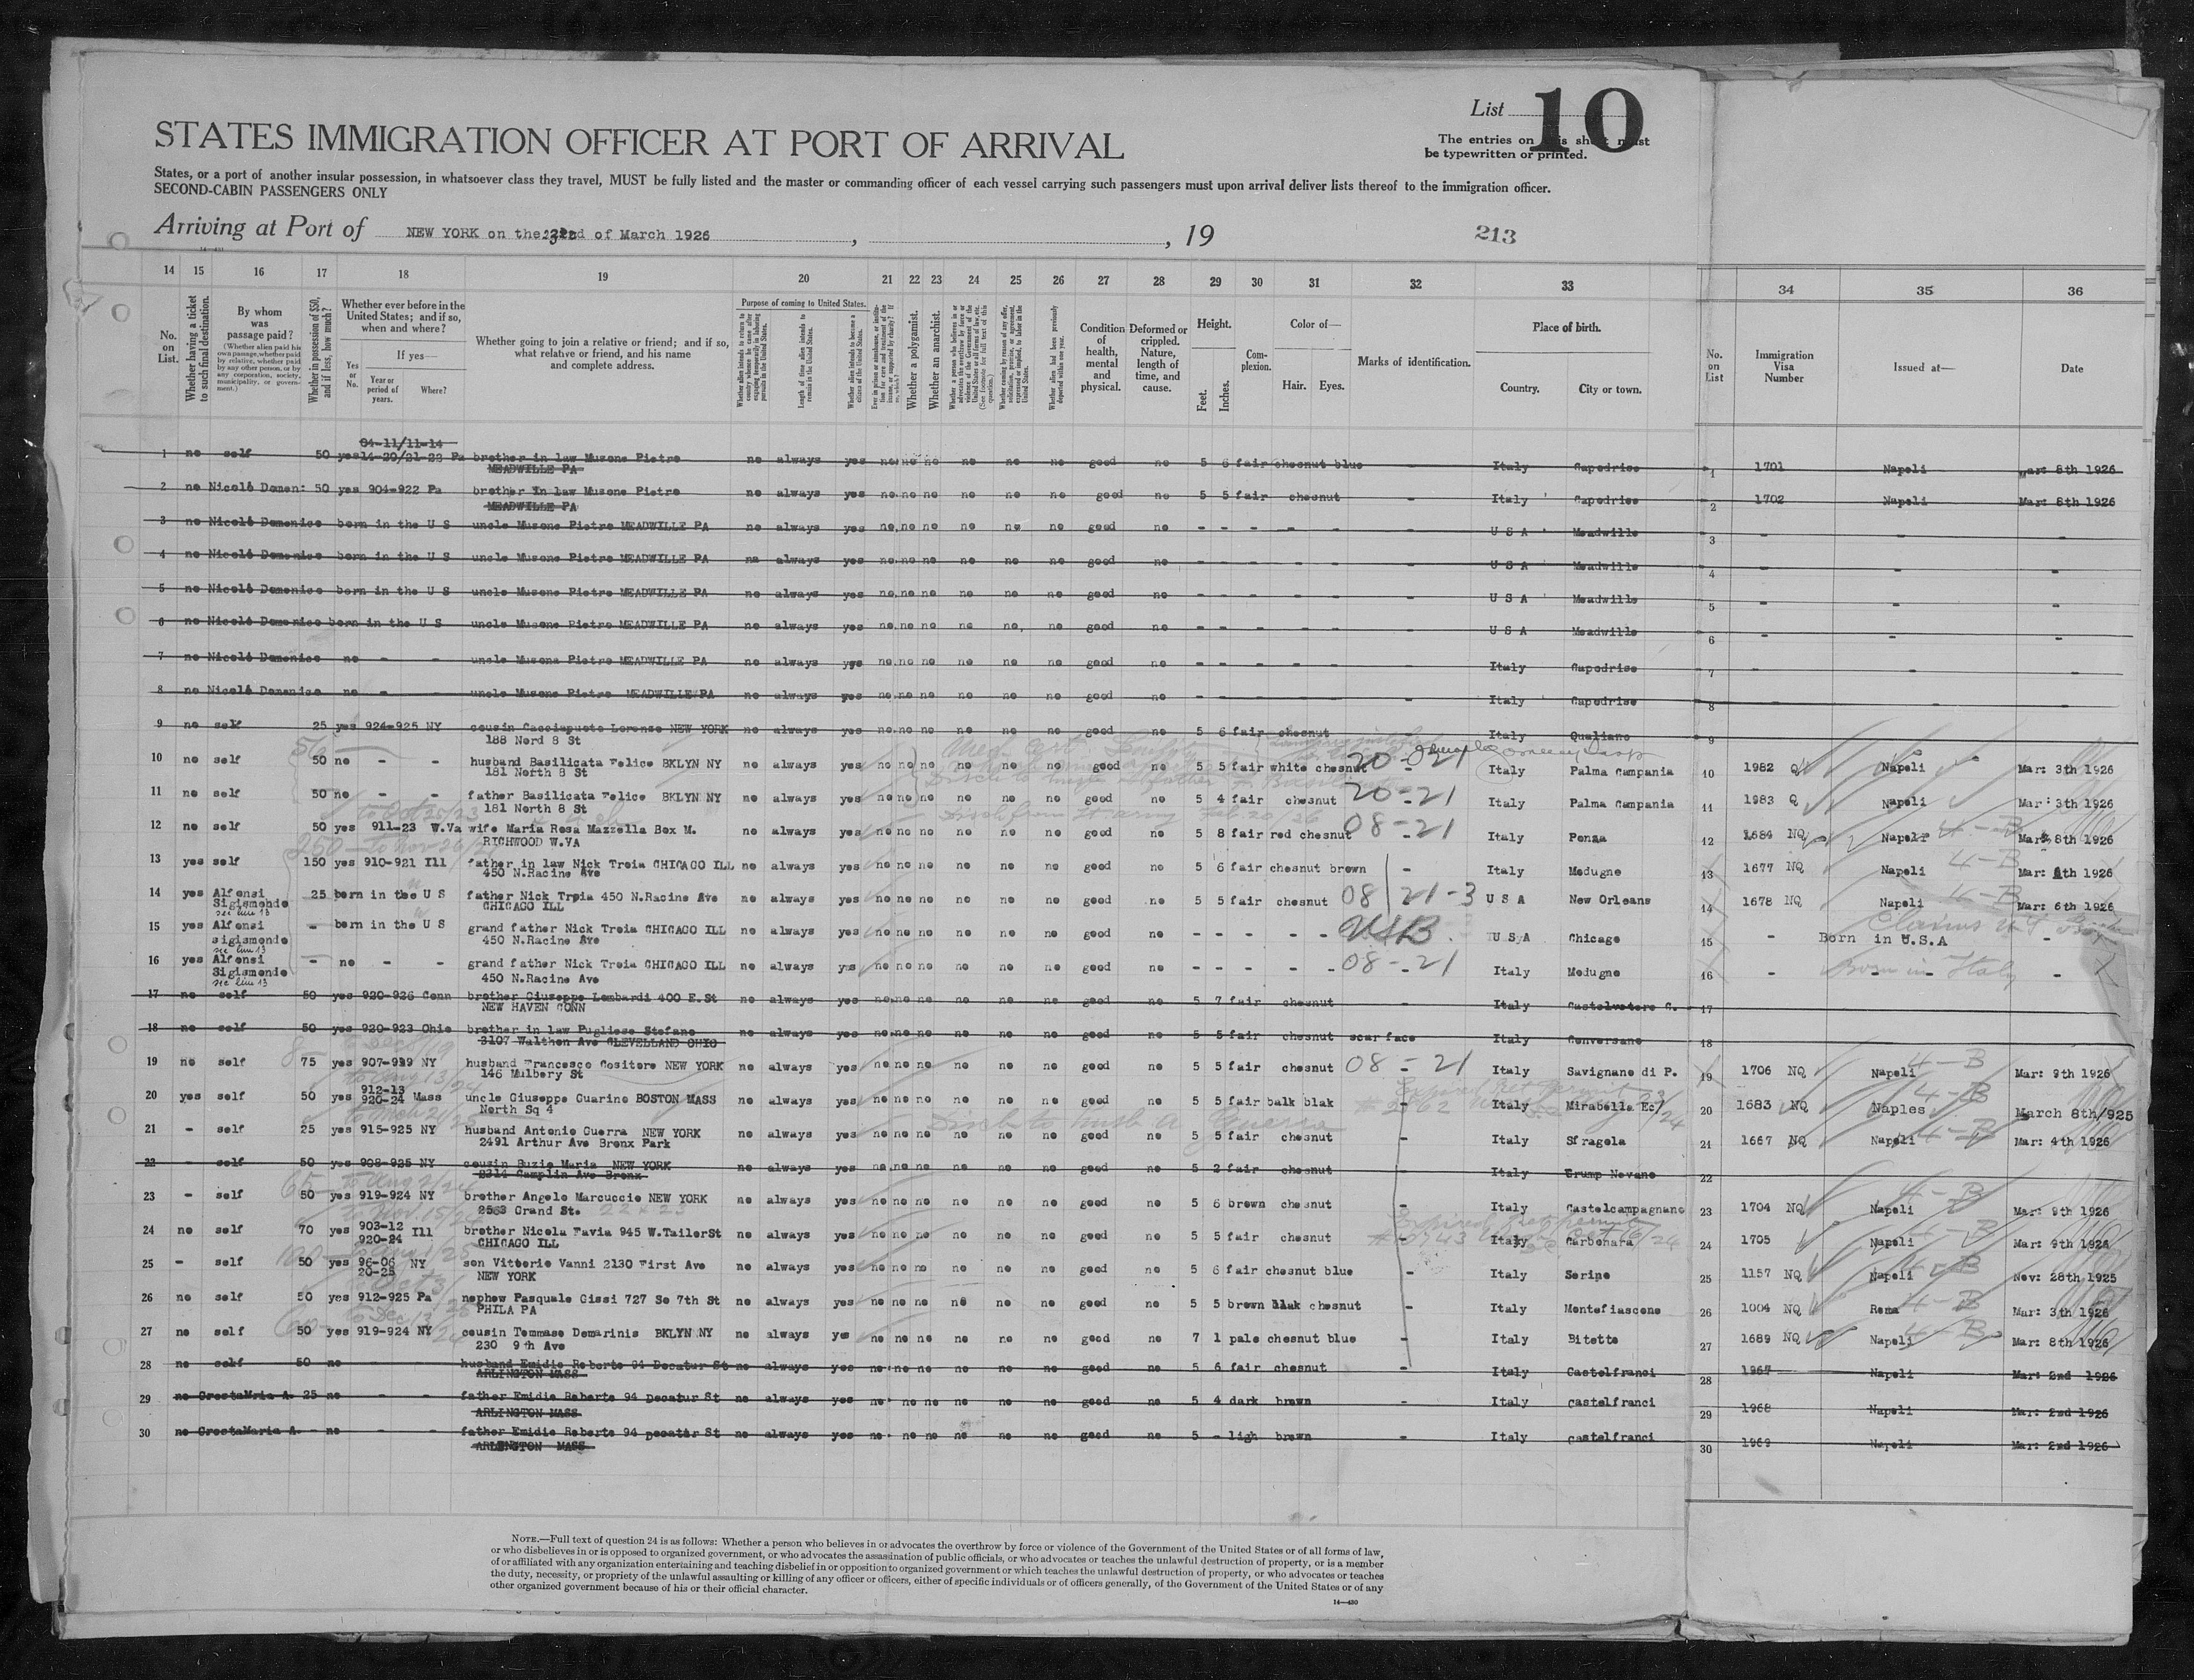 List 10
The entries on this sheet must
be typewritten or printed.
STATES IMMIGRATION OFFICER AT PORT OF ARRIVAL
States, or a port of another insular possession, in whatsoever class they travel, MUST be fully listed and the master or commanding officer of each vessel carrying such passengers must upon arrival deliver lists thereof to the immigration officer.
SECOND-CABIN PASSENGERS ONLY
Arriving at Port of NEW YORK on the 22nd of March 1926 , , 19 213
14 15 16 17 18 19 20 21 22 23 24 25 26 27 28 29 30 31 32 33 34 35 36
No. on List.
Whether having a ticket to such final destination.
By whom was passage paid?
(Whether alien paid his own passage, whether paid by relative, whether paid by any other person, or by any corporation, society, municipality, or government.)
Whether in possession of $50, and if less, how much?
Whether ever before in the United States; and if so, when and where?
Yes or No.
If yes—
Year or period of years.
Where?
Whether going to join a relative or friend; and if so, what relative or friend, and his name and complete address.
Purpose of coming to United States.
Length of time alien intends to remain in the United States.
Whether alien intends to become a citizen of the United States.
Whether a polygamist.
Whether an anarchist.
Condition of health, mental and physical.
Deformed or crippled. Nature, length of time, and cause.
Height.
Feet.
Inches.
Complexion.
Color of—
Hair.
Eyes.
Marks of identification.
Place of birth.
Country.
City or town.
No. on List
Immigration Visa Number
Issued at—
Date
04-11/11-14
1 no self 50 yes 14-20/21-22 Pa brother in law Musone Pietro no always yes no no no no no no good no 5 6 fair chesnut blue - Italy Capodrise 1 1701 Napoli Mar: 8th 1926
MEADWILLE PA
2 no Nicolò Domen: 50 yes 904-922 Pa brother in law Musone Pietro no always yes no no no no no no good no 5 5 fair chesnut - Italy Capodrise 2 1702 Napoli Mar: 8th 1926
MEADWILLE PA
3 no Nicolò Domenico born in the U S uncle Musone Pietro MEADWILLE PA no always yes no no no no no no good no - - - - - - U S A Meadwille 3 - - -
4 no Nicolò Domenico born in the U S uncle Musone Pietro MEADWILLE PA no always yes no no no no no no good no - - - - - - U S A Meadwille 4 - - -
5 no Nicolò Domenico born in the U S uncle Musone Pietro MEADWILLE PA no always yes no no no no no no good no - - - - - - U S A Meadwille 5 - - -
6 no Nicolò Domenico born in the U S uncle Musone Pietro MEADWILLE PA no always yes no no no no no no good no - - - - - - U S A Meadwille 6 - - -
7 no Nicolò Domenico no - - uncle Musone Pietro MEADWILLE PA no always yes no no no no no no good no - - - - - - Italy Capodrise 7 - - -
8 no Nicolò Domenico no - - uncle Musone Pietro MEADWILLE PA no always yes no no no no no no good no - - - - - - Italy Capodrise 8
9 no self 25 yes 924-925 NY cousin Cacciapuoto Lorenzo NEW YORK no always yes no no no no no no good no 5 6 fair chesnut Italy Qualiano 9
188 Nord 8 St
10 no self 50 no - - husband Basilicata Felice BKLYN NY no always yes no no no no no no good no 5 5 fair white chesnut 20-021 Italy Palma Campania 10 1982 Q Napoli Mar: 3th 1926
181 North 8 St
11 no self 50 no - - father Basilicata Felice BKLYN NY no always yes no no no no no no good no 5 4 fair chesnut 20-21 Italy Palma Campania 11 1983 Q Napoli Mar: 3th 1926
181 North 8 St
12 no self 50 yes 911-23 W.Va wife Maria Rosa Mazzella Box M. no always yes no no no no no no good no 5 8 fair red chesnut 08-21 Italy Ponza 12 1684 NQ Napoli 4-B Mar: 8th 1926
RICHWOOD W.VA
13 yes self 150 yes 910-921 Ill father in law Nick Troia CHICAGO ILL no always yes no no no no no no good no 5 6 fair chesnut brown - Italy Modugno 13 1677 NQ Napoli 4-B Mar: 6th 1926
450 N.Racine Ave
14 yes Alfonsi Sigismondo 25 born in the U S father Nick Troia 450 N.Racine Ave no always yes no no no no no no good no 5 5 fair chesnut 08/21-3 U S A New Orleans 14 1678 NQ Napoli 4-B Mar: 6th 1926
see line 13 CHICAGO ILL
15 yes Alfonsi sigismondo - born in the U S grand father Nick Troia CHICAGO ILL no always yes no no no no no no good no - - - - - USB U S A Chicago 15 - Born in U.S.A -
see line 13 450 N.Racine Ave
16 yes Alfonsi Sigismondo - no - - grand father Nick Troia CHICAGO ILL no always yes no no no no no no good no - - - - - 08-21 Italy Modugno 16 - Born in Italy -
see line 13 450 N.Racine Ave
17 no self 50 yes 920-926 Conn brother Giuseppe Lombardi 400 E.St no always yes no no no no no no good no 5 7 fair chesnut - Italy Castelvetere C. 17
NEW HAVEN CONN
18 no self 50 yes 920-923 Ohio brother in law Pugliese Stefano no always yes no no no no no no good no 5 5 fair chesnut scar face Italy Conversano 18
3107 Walthon Ave CLEVELLAND OHIO
19 no self 75 yes 907-919 NY husband Francesco Cositore NEW YORK no always yes no no no no no no good no 5 5 fair chesnut 08-21 Italy Savignano di P. 19 1706 NQ Napoli 4-B Mar: 9th 1926
146 Mulbery St
20 yes self 50 yes 912-13 920-24 Mass uncle Giuseppe Guarino BOSTON MASS no always yes no no no no no no good no 5 5 fair balk blak - Italy Mirabella Ec/ 20 1683 NQ Naples 4-B March 8th/925
North Sq 4
21 - self 25 yes 915-925 NY husband Antonio Guerra NEW YORK no always yes no no no no no no good no 5 5 fair chesnut - Italy Sfragola 21 1667 NQ Napoli 4-B Mar: 4th 1926
2491 Arthur Ave Bronx Park
22 - self 50 yes 908-925 NY cousin Buzio Maria NEW YORK no always yes no no no no no no good no 5 2 fair chesnut Italy Grump Nevano 22
2314 Camplin Ave Bronx
23 - self 50 yes 919-924 NY brother Angelo Marcuccio NEW YORK no always yes no no no no no no good no 5 6 brown chesnut - Italy Castelcampagnano 23 1704 NQ Napoli 4-B Mar: 9th 1926
2563 Grand St.
24 no self 70 yes 903-12 920-24 Ill brother Nicola Favia 945 W.TailerSt no always yes no no no no no no good no 5 5 fair chesnut - Italy Carbonara 24 1705 Napoli 4-B Mar: 9th 1926
CHICAGO ILL
25 - self 50 yes 96-06 20-25 NY son Vittorio Vanni 2130 First Ave no always yes no no no no no no good no 5 6 fair chesnut blue - Italy Serino 25 1157 NQ Napoli Nov: 28th 1925
NEW YORK
26 no self 50 yes 912-925 Pa nephew Pasquale Cissi 727 So 7th St no always yes no no no no no no good no 5 5 brown blak chesnut - Italy Montefiascone 26 1004 NQ Roma 4-B Mar: 3th 1926
PHILA PA
27 no self 50 yes 919-924 NY cousin Tommaso Demarinis BKLYN NY no always yes no no no no no no good no 7 1 pale chesnut blue - Italy Bitetto 27 1689 NQ Napoli 4-B Mar: 8th 1926
230 9th Ave
28 no self 50 no husband Emidio Roberto 94 Decatur St no always yes no no no no no no good no 5 6 fair chesnut - Italy Castelfranci 28 1967 Napoli Mar: 2nd 1926
ARLINGTON MASS
29 no CrestaMria A. 25 no - - father Emidio Roberto 94 Decatur St no always yes no no no no no no good no 5 4 dark brown - Italy castelfranci 29 1968 Napoli Mar: 2nd 1926
ARLINGTON MASS
30 no CrestaMaria A. - no - - father Emidio Roberto 94 Decatur St no always yes no no no no no no good no 5 - ligh brown - Italy castelfranci 30 1969 Napoli Mar: 2nd 1926
ARLINGTON MASS
NOTE.—Full text of question 24 is as follows: Whether a person who believes in or advocates the overthrow by force or violence of the Government of the United States or of all forms of law,
or who disbelieves in or is opposed to organized government, or who advocates the assassination of public officials, or who advocates or teaches the unlawful destruction of property, or is a member
of or affiliated with any organization entertaining and teaching disbelief in or opposition to organized government or which teaches the unlawful destruction of property, or who advocates or teaches
the duty, necessity, or propriety of the unlawful assaulting or killing of any officer or officers, either of specific individuals or of officers generally, of the Government of the United States or of any
other organized government because of his or their official character.
14—430